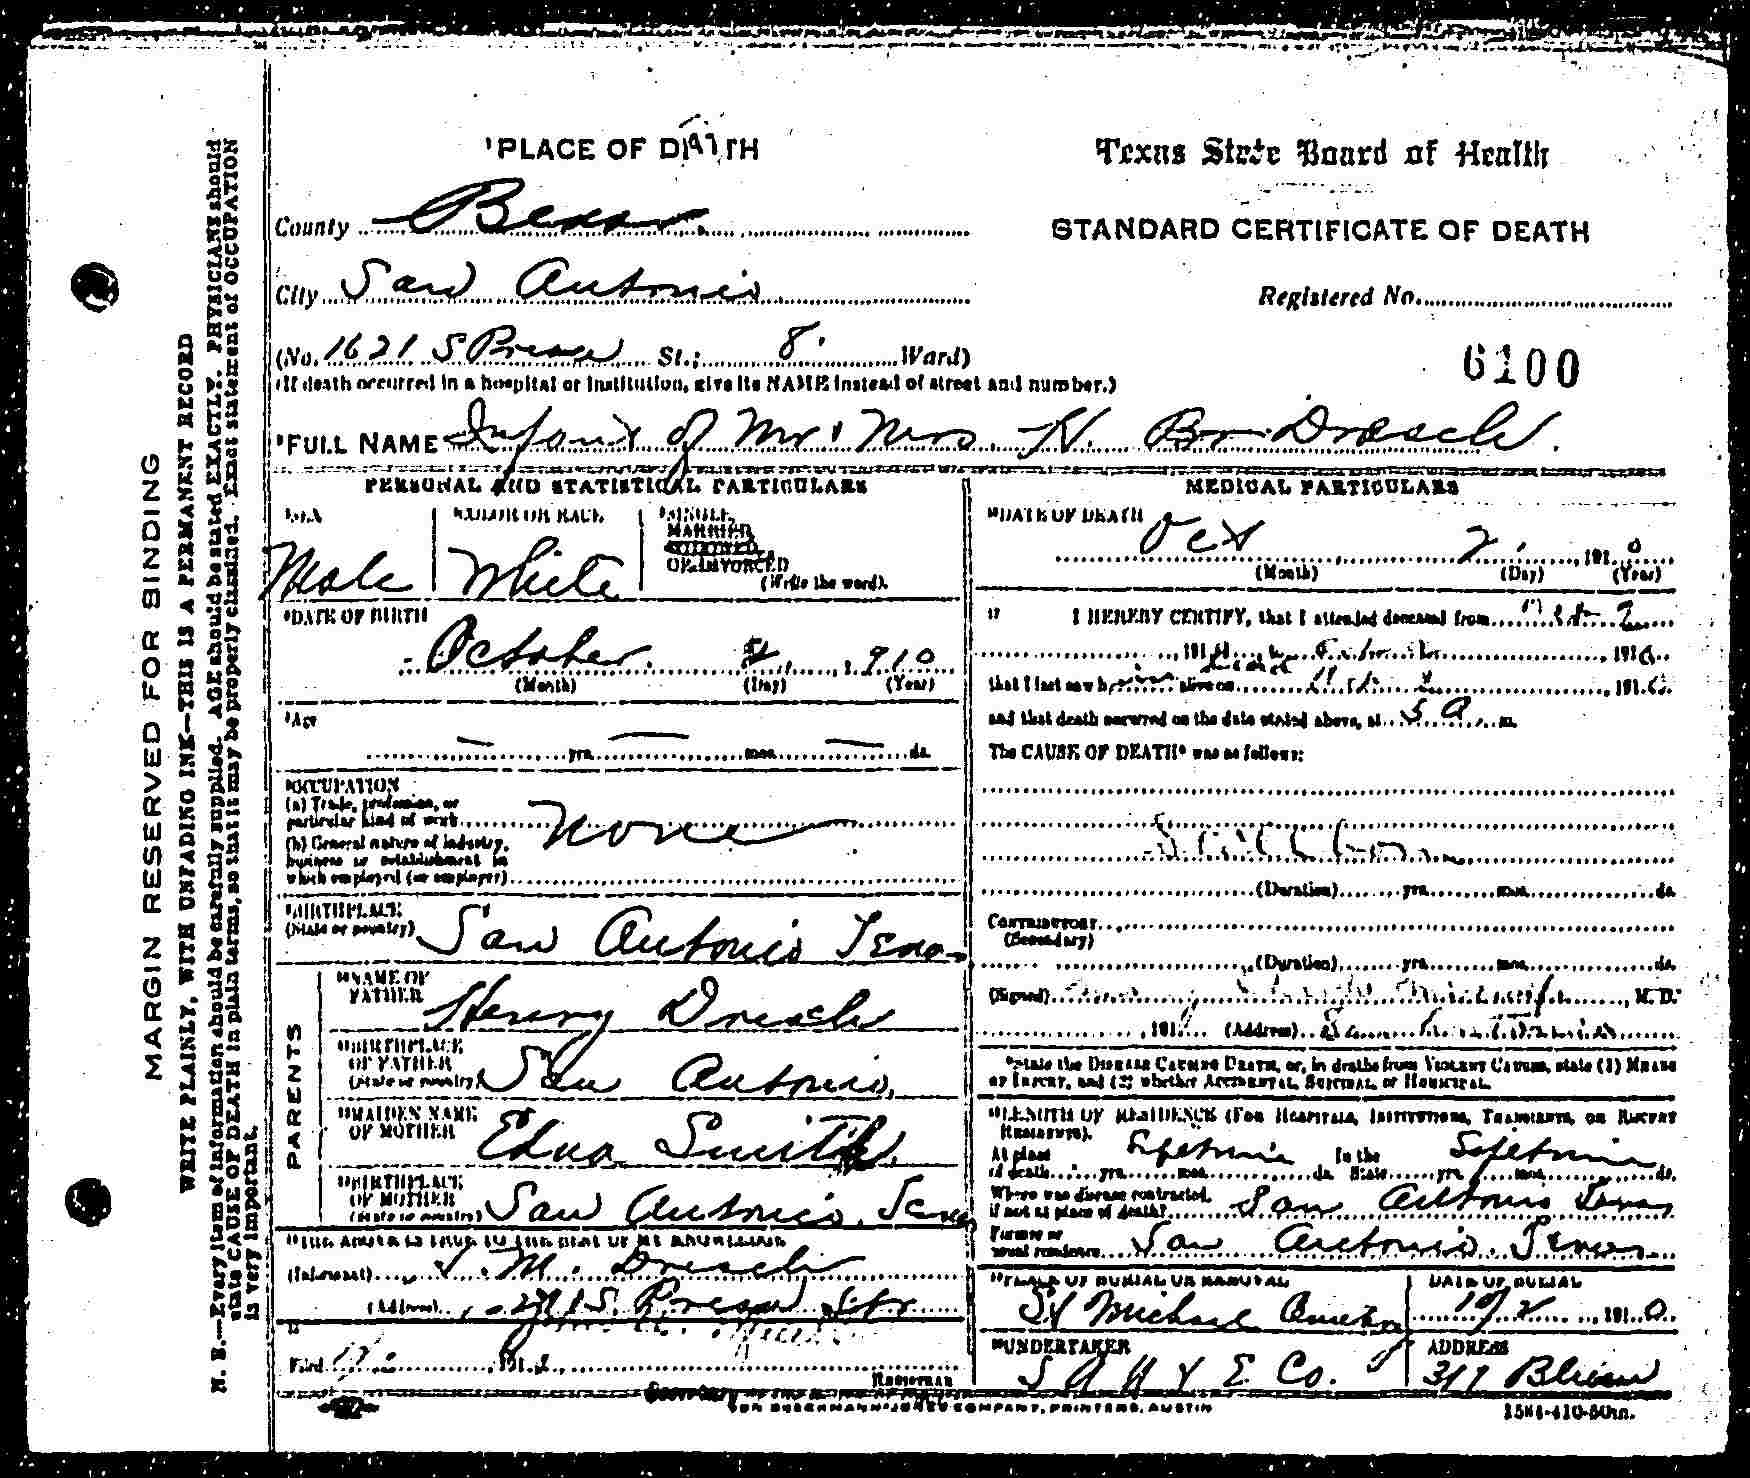 MARGIN RESERVED FOR BINDING
WRITE PLAINLY, WITH UNFADING INK—THIS IS A PERMANENT RECORD
N. B.—Every item of information should be carefully supplied. AGE should be stated EXACTLY. PHYSICIANS should
state CAUSE OF DEATH in plain terms, so that it may be properly classified. Exact statement of OCCUPATION
is very important.
PLACE OF DEATH
County Bexar.
City San Antonio
(No. 1621 S Presa St.; 8. Ward)
(If death occurred in a hospital or institution, give its NAME instead of street and number.)
Texas State Board of Health
STANDARD CERTIFICATE OF DEATH
Registered No.
6100
FULL NAME Infant of Mr & Mrs. H. Dresch.
PERSONAL AND STATISTICAL PARTICULARS
SEX
Male
COLOR OR RACE
White
SINGLE,
MARRIED,
WIDOWED,
OR DIVORCED
(Write the word).
DATE OF BIRTH
October 2, 1910
(Month) (Day) (Year)
Age
— yrs. — mos. — ds.
OCCUPATION
(a) Trade, profession, or
particular kind of work
None
(b) General nature of industry,
business or establishment in
which employed (or employer)
BIRTHPLACE
(State or country) San Antonio Texas
PARENTS
NAME OF
FATHER Henry Dresch
BIRTHPLACE
OF FATHER
(State or country) San Antonio,
MAIDEN NAME
OF MOTHER Edna Smith.
BIRTHPLACE
OF MOTHER
(State or country) San Antonio, Texas
THE ABOVE IS TRUE TO THE BEST OF MY KNOWLEDGE
(Informant) J. M. Dresch
(Address) S. Presa Str
Filed 191
REGISTRAR
MEDICAL PARTICULARS
DATE OF DEATH
Oct 2, 1910
(Month) (Day) (Year)
I HEREBY CERTIFY, that I attended deceased from Oct 2
191 to Oct 2, 1910
that I last saw him alive on Oct 2, 1910
and that death occurred on the date stated above, at 5 A m.
The CAUSE OF DEATH* was as follows:
Still born
(Duration) yrs. mos. ds.
CONTRIBUTORY
(Secondary)
(Duration) yrs. mos. ds.
(Signed) , M. D.
, 191 (Address) San Antonio
*State the DISEASE CAUSING DEATH, or, in deaths from VIOLENT CAUSES, state (1) MEANS
OF INJURY, and (2) whether ACCIDENTAL, SUICIDAL, or HOMICIDAL.
LENGTH OF RESIDENCE (FOR HOSPITALS, INSTITUTIONS, TRANSIENTS, OR RECENT
RESIDENTS).
At place
of death yrs. mos. ds. Lifetime In the
State yrs. mos. ds. Lifetime
Where was disease contracted,
if not at place of death? San Antonio Texas
Former or
usual residence San Antonio. Texas
PLACE OF BURIAL OR REMOVAL
St Michael Cemetery
DATE OF BURIAL
10/2, 1910
UNDERTAKER
S A U & E Co.
ADDRESS
VON BOECKMANN-JONES COMPANY, PRINTERS, AUSTIN
1584-410-50m.